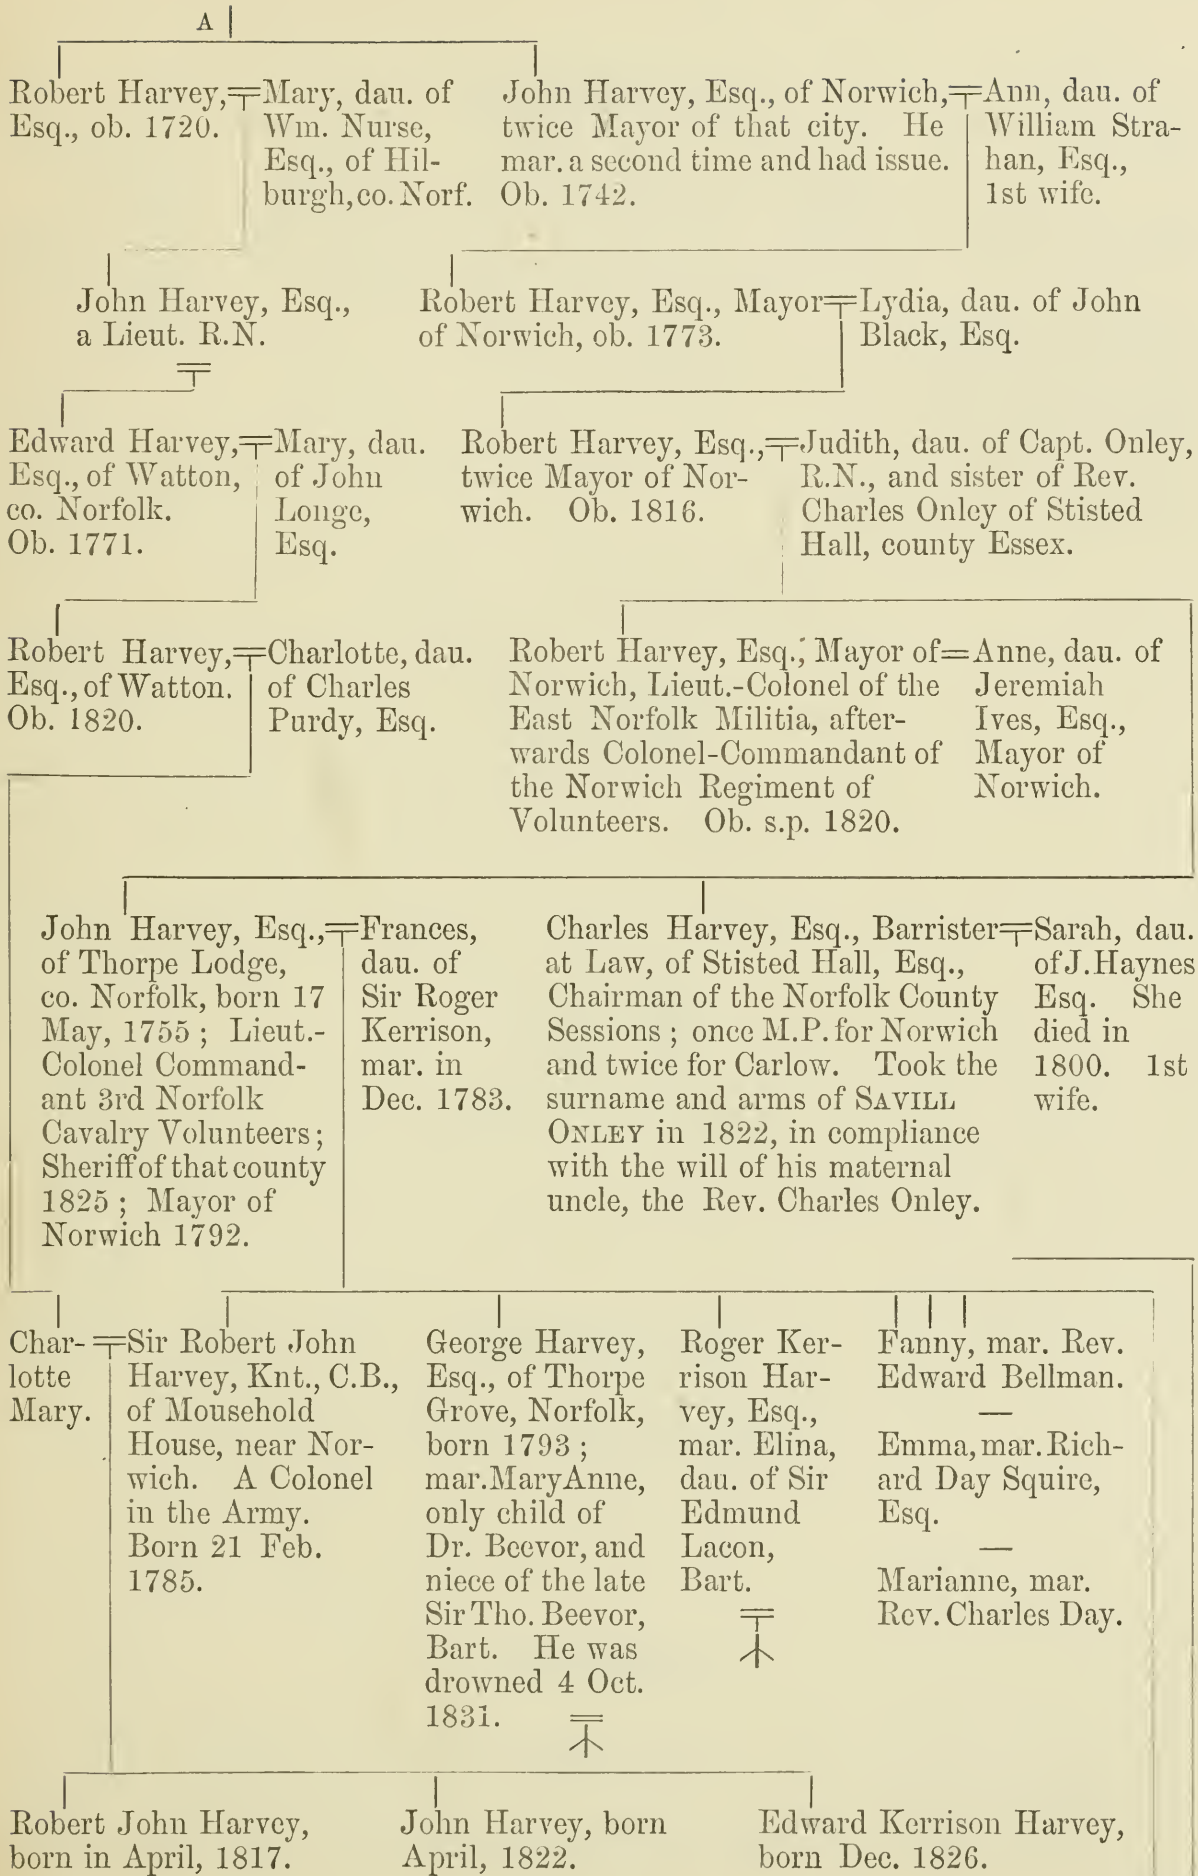 A
Robert Harvey,
Esq., ob. 1720.
Mary, dau. of
Wm. Nurse,
Esq., of Hil-
burgh, co. Norf.
John Harvey, Esq., of Norwich,
twice Mayor of that city. He
mar. a second time and had issue.
Ob. 1742.
Ann, dau. of
William Stra-
han, Esq.,
1st wife.
John Harvey, Esq.,
a Lieut. R.N.
Robert Harvey, Esq., Mayor
of Norwich, ob. 1773.
Lydia, dau. of John
Black, Esq.
Edward Harvey,
Esq., of Watton,
co. Norfolk.
Ob. 1771.
Mary, dau.
of John
Longe,
Esq.
Robert Harvey, Esq.,
twice Mayor of Nor-
wich. Ob. 1816.
Judith, dau. of Capt. Onley,
R.N., and sister of Rev.
Charles Onley of Stisted
Hall, county Essex.
Robert Harvey,
Esq., of Watton.
Ob. 1820.
Charlotte, dau.
of Charles
Purdy, Esq.
Robert Harvey, Esq., Mayor of
Norwich, Lieut.-Colonel of the
East Norfolk Militia, after-
wards Colonel-Commandant of
the Norwich Regiment of
Volunteers. Ob. s.p. 1820.
Anne, dau. of
Jeremiah
Ives, Esq.,
Mayor of
Norwich.
John Harvey, Esq.,
of Thorpe Lodge,
co. Norfolk, born 17
May, 1755 ; Lieut.-
Colonel Command-
ant 3rd Norfolk
Cavalry Volunteers ;
Sheriff of that county
1825 ; Mayor of
Norwich 1792.
Frances,
dau. of
Sir Roger
Kerrison,
mar. in
Dec. 1783.
Charles Harvey, Esq., Barrister
at Law, of Stisted Hall, Esq.,
Chairman of the Norfolk County
Sessions ; once M.P. for Norwich
and twice for Carlow. Took the
surname and arms of SAVILL
ONLEY in 1822, in compliance
with the will of his maternal
uncle, the Rev. Charles Onley.
Sarah, dau.
of J. Haynes
Esq. She
died in
1800. 1st
wife.
Char-
lotte
Mary.
Sir Robert John
Harvey, Knt., C.B.,
of Mousehold
House, near Nor-
wich. A Colonel
in the Army.
Born 21 Feb.
1785.
George Harvey,
Esq., of Thorpe
Grove, Norfolk,
born 1793 ;
mar. Mary Anne,
only child of
Dr. Beevor, and
niece of the late
Sir Tho. Beevor,
Bart. He was
drowned 4 Oct.
1831.
Roger Ker-
rison Har-
vey, Esq.,
mar. Elina,
dau. of Sir
Edmund
Lacon,
Bart.
Fanny, mar. Rev.
Edward Bellman.
—
Emma, mar. Rich-
ard Day Squire,
Esq.
—
Marianne, mar.
Rev. Charles Day.
Robert John Harvey,
born in April, 1817.
John Harvey, born
April, 1822.
Edward Kerrison Harvey,
born Dec. 1826.